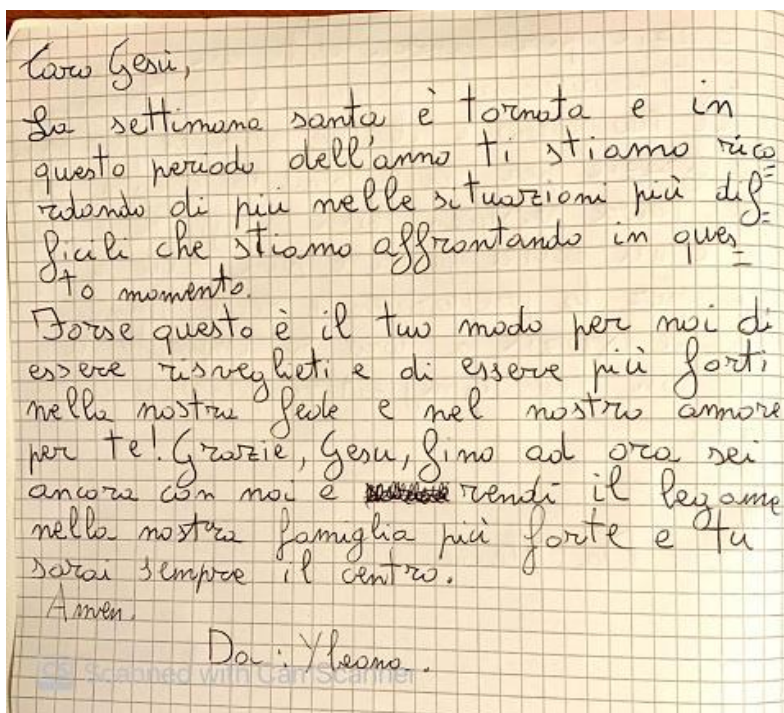 Caro Gesù,
La settimana santa è tornata e in
questo periodo dell'anno ti stiamo rico
rdando di più nelle situazioni più dif=
ficili che stiamo affrontando in ques_
to momento.
Forse questo è il tuo modo per noi di
essere risveglieti e di essere più forti
nella nostra fede e nel nostro amore
per te! Grazie, Gesu, fino ad ora sei
ancora con noi e rendi il legame
nella nostra famiglia più forte e tu
sarai sempre il centro.
Amen.
Da: Yleana.
CS Scanned with CamScanner